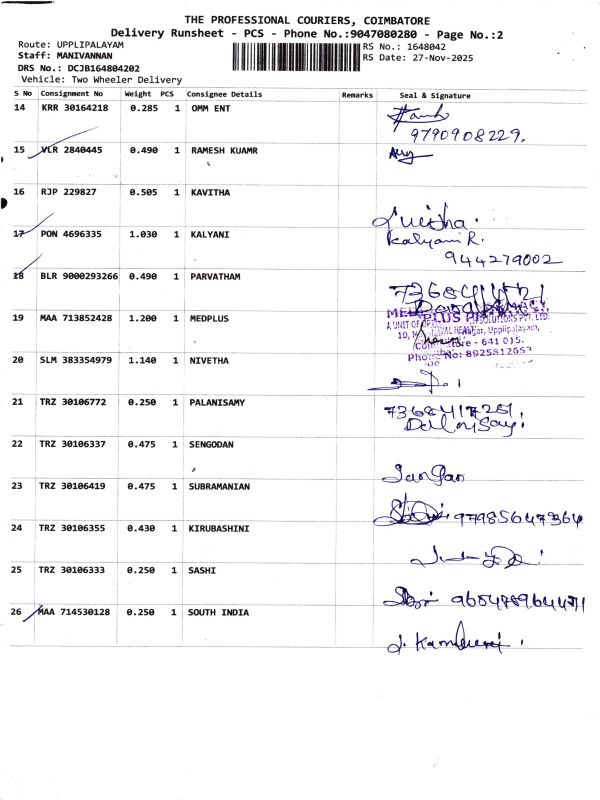 THE PROFESSIONAL COURIERS, COIMBATORE
Delivery Runsheet - PCS - Phone No.:9047080280 - Page No.:2
Route: UPPLIPALAYAM
Staff: MANIVANNAN
DRS No.: DCJB164804202
Vehicle: Two Wheeler Delivery
RS No.: 1648042
RS Date: 27-Nov-2025
S No Consignment No Weight PCS Consignee Details Remarks Seal & Signature
14 KRR 30164218 0.285 1 OMM ENT
9790908229.
15 VLR 2840445 0.490 1 RAMESH KUAMR
16 RJP 229827 0.505 1 KAVITHA
17 PON 4696335 1.030 1 KALYANI
Kalyani R.
944279002
18 BLR 9000293266 0.490 1 PARVATHAM
19 MAA 713852428 1.200 1 MEDPLUS
20 SLM 383354979 1.140 1 NIVETHA
21 TRZ 30106772 0.250 1 PALANISAMY
22 TRZ 30106337 0.475 1 SENGODAN
23 TRZ 30106419 0.475 1 SUBRAMANIAN
24 TRZ 30106355 0.430 1 KIRUBASHINI
25 TRZ 30106333 0.250 1 SASHI
26 MAA 714530128 0.250 1 SOUTH INDIA